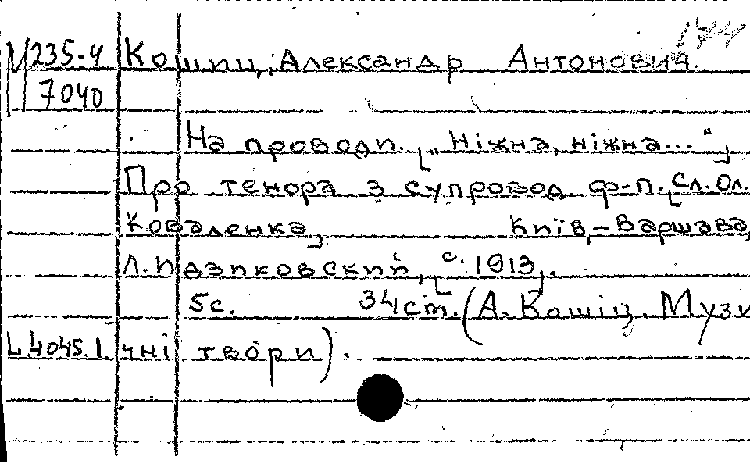 М 235-4 Кошиц, Александр Антонович.
7040
На проводи. [„Ніжна, ніжна..."]
Про тенора з супровод. ф-п. [Сл. Ол.
Коваленка] Київ,-Варшава,
Л. Идзиковский, [с. 1913].
5с. 34 ст. (А. Кошіц. Музи
L 4045.1. чні твори).